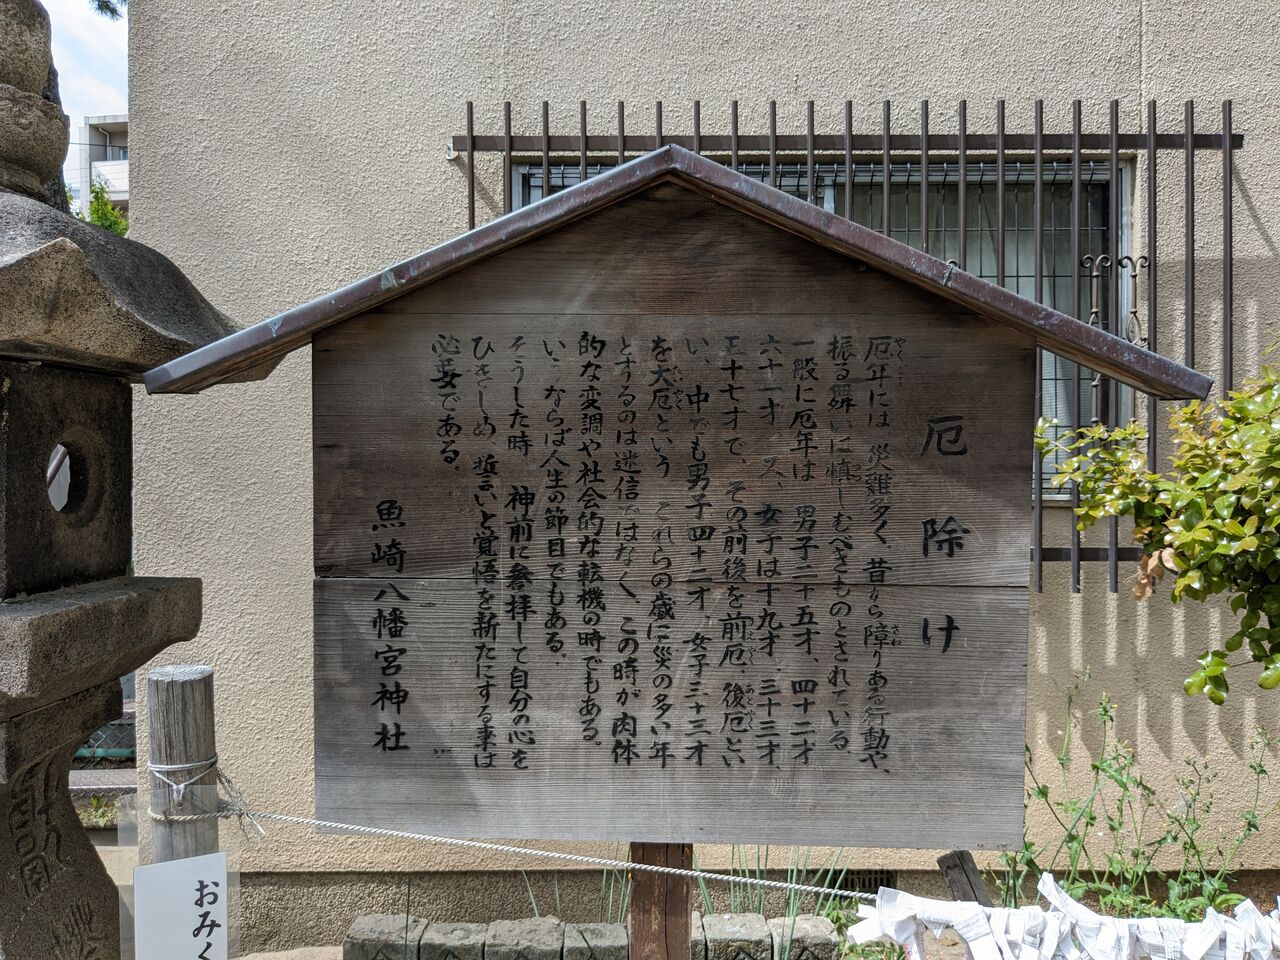 厄除け
厄年には 災難多く、昔から障りある行動や、
振る舞いに慎しむべきものとされている
一般に厄年は 男子二十五才、四十二才
六十一才 又、女子は十九才、三十三才、
三十七才で、その前後を前厄、後厄とい
い、中でも男子四十二才、女子三十三才
を大厄という これらの歳に災の多い年
とするのは迷信ではなく、この時が肉体
的な変調や社会的な転機の時でもある。
いいならば人生の節目でもある。
そうした時 神前に参拝して自分の心を
ひきしめ、誓いと覚悟を新たにする事は
必要である。
魚崎八幡宮神社
おみく